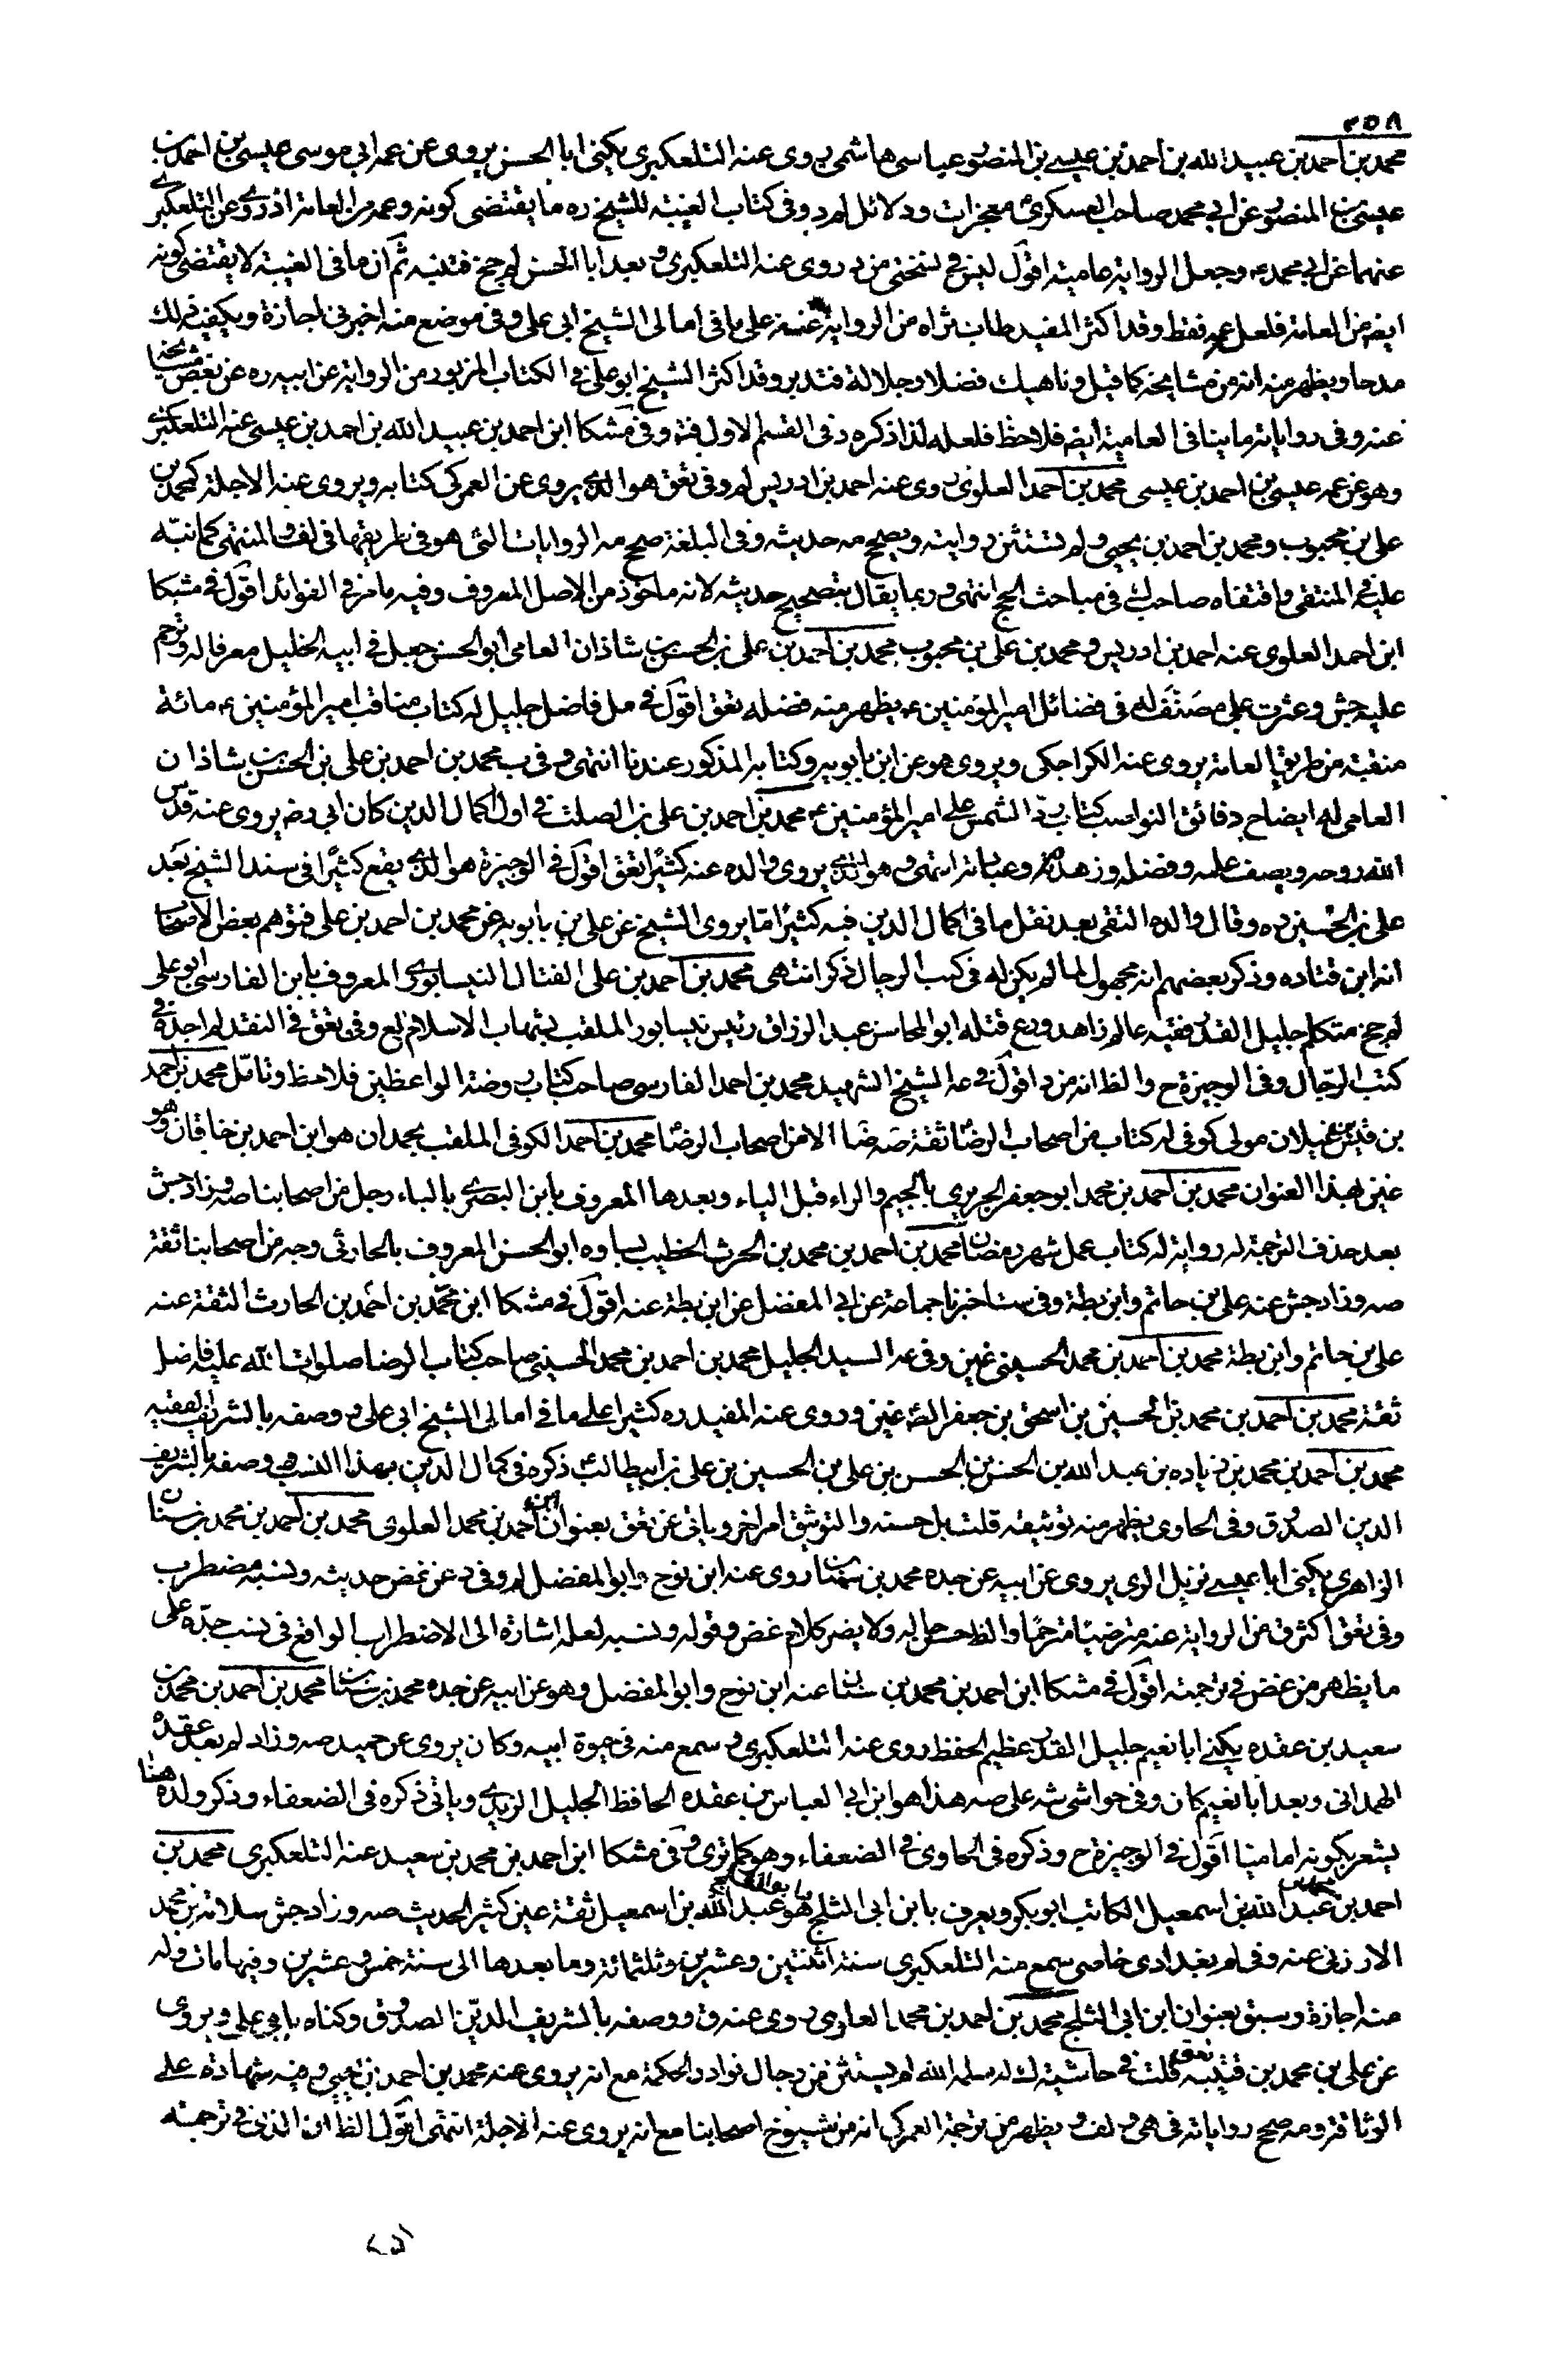 ٢٥٨
محمد بن احمد بن عبيد الله بن احمد بن عيسى بن المنصور عباسى هاشمى روى عنه التلعكبرى يكنى ابا الحسن يروى عن عمه ابى موسى عيسى بن احمد بن
عيسى بن المنصور عن ابى محمد صاحب العسكر ع معجزات ودلائل لم د وفى كتاب الغيبة للشيخ ره ما يقتضى كونه وعمه من العامة اذ روى عن التلعكبرى
عنهما عن ابى محمد ع وجعل الرواية عامية اقول ليس فى نسختى من د روى عنه التلعكبرى و بعد ابا الحسن لم جخ فتنبه ثم ان ما فى الغيبة لا يقتضى كونه
ايضا من العامة فلعل عمه فقط وقد اكثر المفيد طاب ثراه من الرواية عنه على ما فى امالى الشيخ ابى على وفى موضع منه اخبرنى اجازة ويكفيه ذلك
مدحا ويظهر منه انه من مشايخه كما قيل وناهيك فضلا وجلالة فتدبر وقد اكثر الشيخ ابو على فى الكتاب المزبور من الرواية عن ابيه ره عن بعض مشايخه
عنه وفى رواياته ما ينافى العامية ايضا فلاحظ فلعله لذا ذكره د فى القسم الاول فتد وفى مشكا ابن احمد بن عبيد الله بن احمد بن عيسى عنه التلعكبرى
وهو عن عمه عيسى بن احمد بن عيسى محمد بن احمد العلوى روى عنه احمد بن ادريس لم وفى تعق هو الذى يروى عن العمركى كتابه ويروى عنه الاجلة كمحمد بن
على بن محبوب ومحمد بن احمد بن يحيى ولم تستثن روايته ويصحح مه حديثه وفى البلغة صحح مه الروايات التى هو فى طريقها فى لف والمنتهى كما نبه
عليه فى المنتقى واقتفاه صاحب ك فى مباحث الحج انتهى وربما يقال بتصحيح حديثه لانه ماخوذ من الاصل المعروف وفيه ما مر فى الفوائد اقول فى مشكا
ابن احمد العلوى عنه احمد بن ادريس ومحمد بن على بن محبوب محمد بن احمد بن على بن الحسن بن شاذان العامى ابو الحسن جعل فى ابيه الخليل معرفا له وترحم
عليه جش وعثرت على مصنف له فى فضائل امير المؤمنين ع يظهر منه فضله تعق اقول فى مل فاضل جليل له كتاب مناقب امير المؤمنين ع مائة
منقبة من طريق العامة يروى عنه الكراجكى ويروى هو عن ابن بابويه وكتابه المذكور عندنا انتهى وفى ب محمد بن احمد بن على بن الحسن بن شاذان
العامى له ايضاح دفائن النواصب كتاب رد الشمس على امير المؤمنين ع محمد بن احمد بن على بن الصلت فى اول اكمال الدين كان ابى رضه يروى عنه قدس
الله روحه ويصف علمه وفضله وزهده وعبادته انتهى وهو الذى يروى والده عنه كثيرا تعق اقول فى الوجيزة هو الذى يقع كثيرا فى سند الشيخ بعد
على بن الحسين ره وقال والده التقى بعد نقل ما فى اكمال الدين فيه كثيرا ما يروى الشيخ عن على بن بابويه عن محمد بن احمد بن على فتوهم بعض الاصحاب
انه ابن قتاده وذكر بعضهم انه مجهول لما لم يكن له فى كتب الرجال ذكر انتهى محمد بن احمد بن على الفتال النيسابورى المعروف بابن الفارسى ابو على
لم جخ متكلم جليل القدر فقيه عالم زاهد ورع قتله ابو المحاسن عبد الرزاق رئيس نيسابور الملقب بشهاب الاسلام لع وفى تعق فى النقد لم اجده فى
كتب الرجال وفى الوجيزة ح والظ انه من د اقول فى عه الشيخ الشهيد محمد بن احمد الفارسى صاحب كتاب روضة الواعظين فلاحظ وتامل محمد بن احمد
بن قيس بن غيلان مولى كوفى له كتاب من اصحاب الرضا ثقة صه ضا الا من اصحاب الرضا محمد بن احمد الكوفى الملقب بحمدان هو ابن احمد بن خاقان وهو
غين هذا العنوان محمد بن احمد بن محمد ابو جعفر الجريرى بالجيم والراء قبل الياء وبعدها المعروف بابن البصرى بالباء رجل من اصحابنا صه وزاد جش
بعد حذف الترجمة له رواية له كتاب عمل شهر رمضان محمد بن احمد بن محمد بن الحرث الخطيب بساوه ابو الحسن المعروف بالحارثى وجه من اصحابنا ثقة
صه وزاد جش عنه على بن حاتم وابن بطة وفى ست اخبرنا جماعة عن ابى المفضل عن ابن بطة عنه اقول فى مشكا ابن محمد بن احمد بن الحارث الثقة عنه
على بن حاتم وابن بطة محمد بن احمد بن محمد الحسينى غين وفى عه السيد الجليل محمد بن احمد بن محمد الحسينى صاحب كتاب الرضا صلوات الله عليه فاضل
ثقة محمد بن احمد بن محمد بن الحسين بن اسحق بن جعفر الصا غين وروى عنه المفيد ره كثيرا على ما فى امالى الشيخ ابى على و وصفه بالشريف الفقيه
محمد بن احمد بن محمد بن زياده بن عبد الله بن الحسن بن الحسن بن على بن الحسين بن على بن ابيطالب ذكره فى كمال الدين بهذا النسب وصفه بالشريف
الدين الصدوق وفى الحاوى يظهر منه توثيقه قلت بل حسنه والتوثيق امر اخر وياتى عن تعق بعنوان ابن احمد بن محمد العلوى محمد بن احمد بن محمد بن سنان
الزاهرى يكنى ابا عيسى نزيل الرى يروى عن ابيه عن جده محمد بن سنان روى عنه ابن نوح وابو المفضل لم وفى د عن غض حديثه ونسبه مضطرب
وفى تعق اكثر ق من الرواية عنه مترضيا مترحما والظ حسن حاله ولا يضر كلام غض وقوله ونسبه لعله اشارة الى الاضطراب الواقع فى نسب جده على
ما يظهر من غض فى ترجمته اقول فى مشكا ابن احمد بن محمد بن سنان عنه ابن نوح وابو المفضل وهو عن ابيه عن جده محمد بن سنان محمد بن احمد بن محمد بن
سعيد بن عقده يكنى ابا نعيم جليل القدر عظيم الحفظ روى عنه التلعكبرى و سمع منه فى حيوة ابيه وكان يروى عن حميد صه وزاد لم بعد عقده
الهمدانى وبعد ابا نعيم كان وفى حواشى شه على صه هذا هو ابن ابى العباس بن عقده الحافظ الجليل الزيدى وياتى ذكره فى الضعفاء وذكر ولده هنا
يشعر بكونه اماميا اقول فى الوجيزة ح وذكره فى الحاوى فى الضعفاء وهو كما ترى وفى مشكا ابن احمد بن محمد بن سعيد عنه التلعكبرى محمد بن
احمد بن عبد الله بن اسمعيل الكاتب ابو بكر ويعرف بابن ابى الثلج هو عبد الله بن اسمعيل ثقة عين كثير الحديث صه وزاد جش سلامة بن محمد
الارزنى عنه وفى لم بغدادى خاصى سمع منه التلعكبرى سنة اثنتين وعشرين وثلثمائة وما بعدها الى سنة خمس وعشرين وفيها مات وله
منه اجازة وسبق بعنوان ابن ابى الثلج محمد بن احمد بن محمد العلوى روى عنه ق ووصفه بالشريف الدين الصدوق وكناه بابى على ويروى
عن على بن محمد بن قتيبه تعق قلت فى حاشيته ك له سلمه الله لم يستثن من رجال نوادر الحكمة مع انه يروى عنه محمد بن احمد بن يحيى وفيه شهادة على
الوثاقة ومه صحح رواياته فى هى و لف و يظهر من ترجمة العمركى انه من شيوخ اصحابنا مع انه يروى عنه الاجلة انتهى اقول الظ ان الذى فى ترجمته